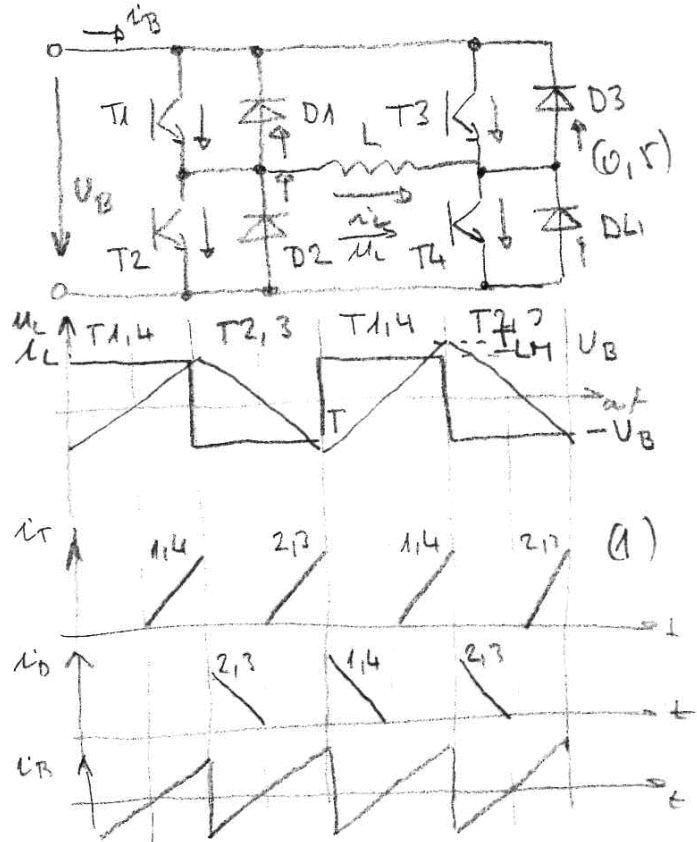 iB
T1 D1 T3 D3
L
(0,5)
UB
iL
T2 D2 uL T4 D4
uL T1,4 T2,3 T1,4 T2,3
iL ILM UB
ωt
T
-UB
iT 1,4 2,3 1,4 2,3 (1)
t
iD 2,3 1,4 2,3
t
iB
t